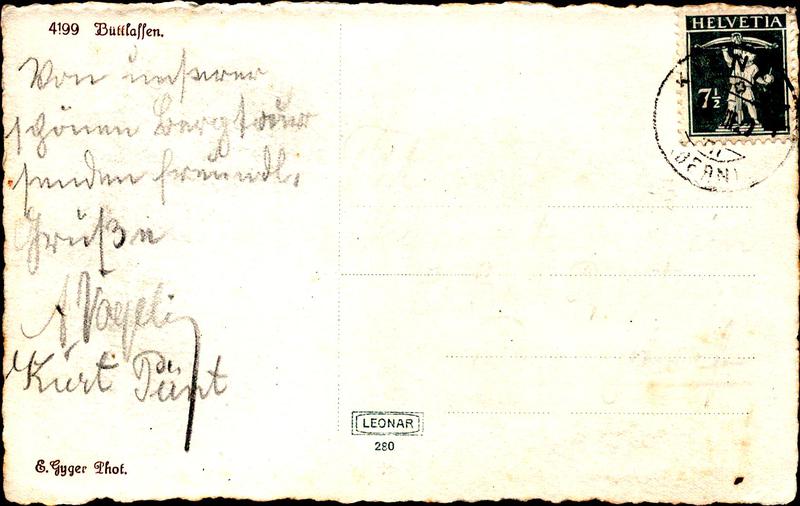 4199 Büttlassen.
Von unserer
schönen Bergtour
senden freundl.
Grüße
A Vögeli
Kurt
E. Gyger Phot.
LEONAR
280
HELVETIA
7½
(BERN)